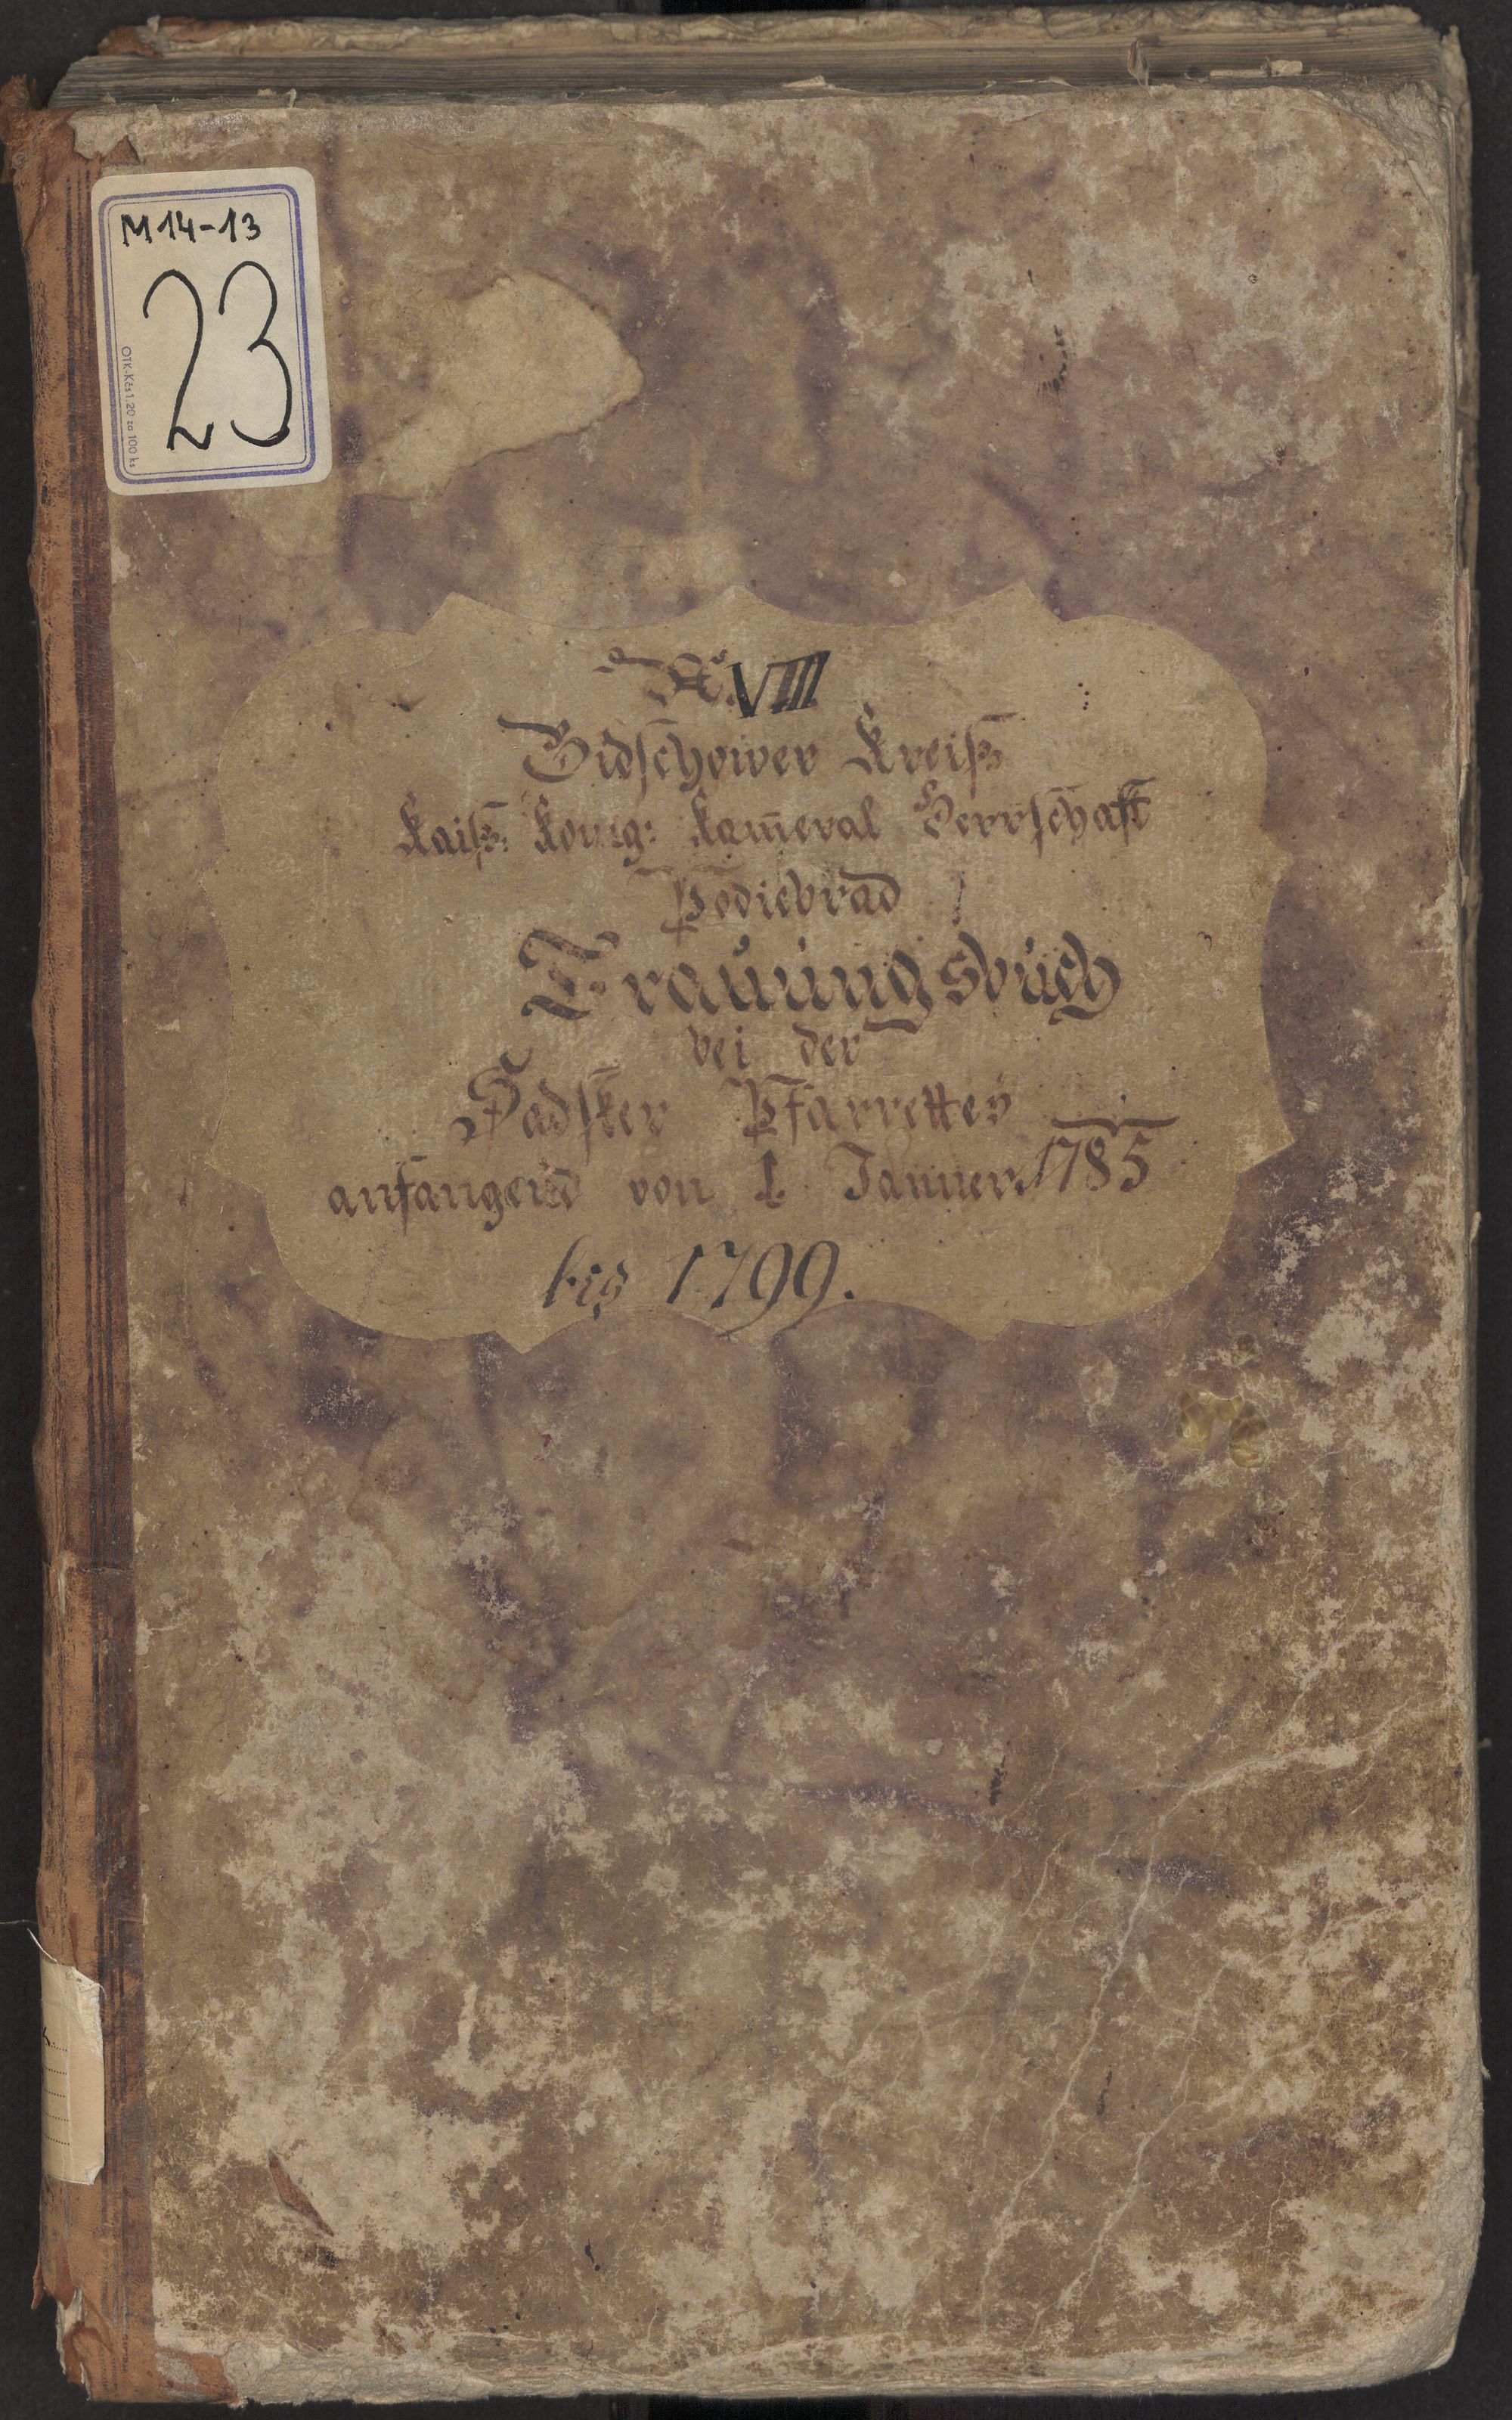 M14-13
23
OTK-Kčs 1,20 za 100 ks
N. VIII
Bidschower Kreiß
Kaiß: König: Kam̄eral Herrschaft
Podiebrad
Trauungsbuch
bei der
Sadsker Pfarrettey
anfangend von 1. Jänner 1785
bis 1799.